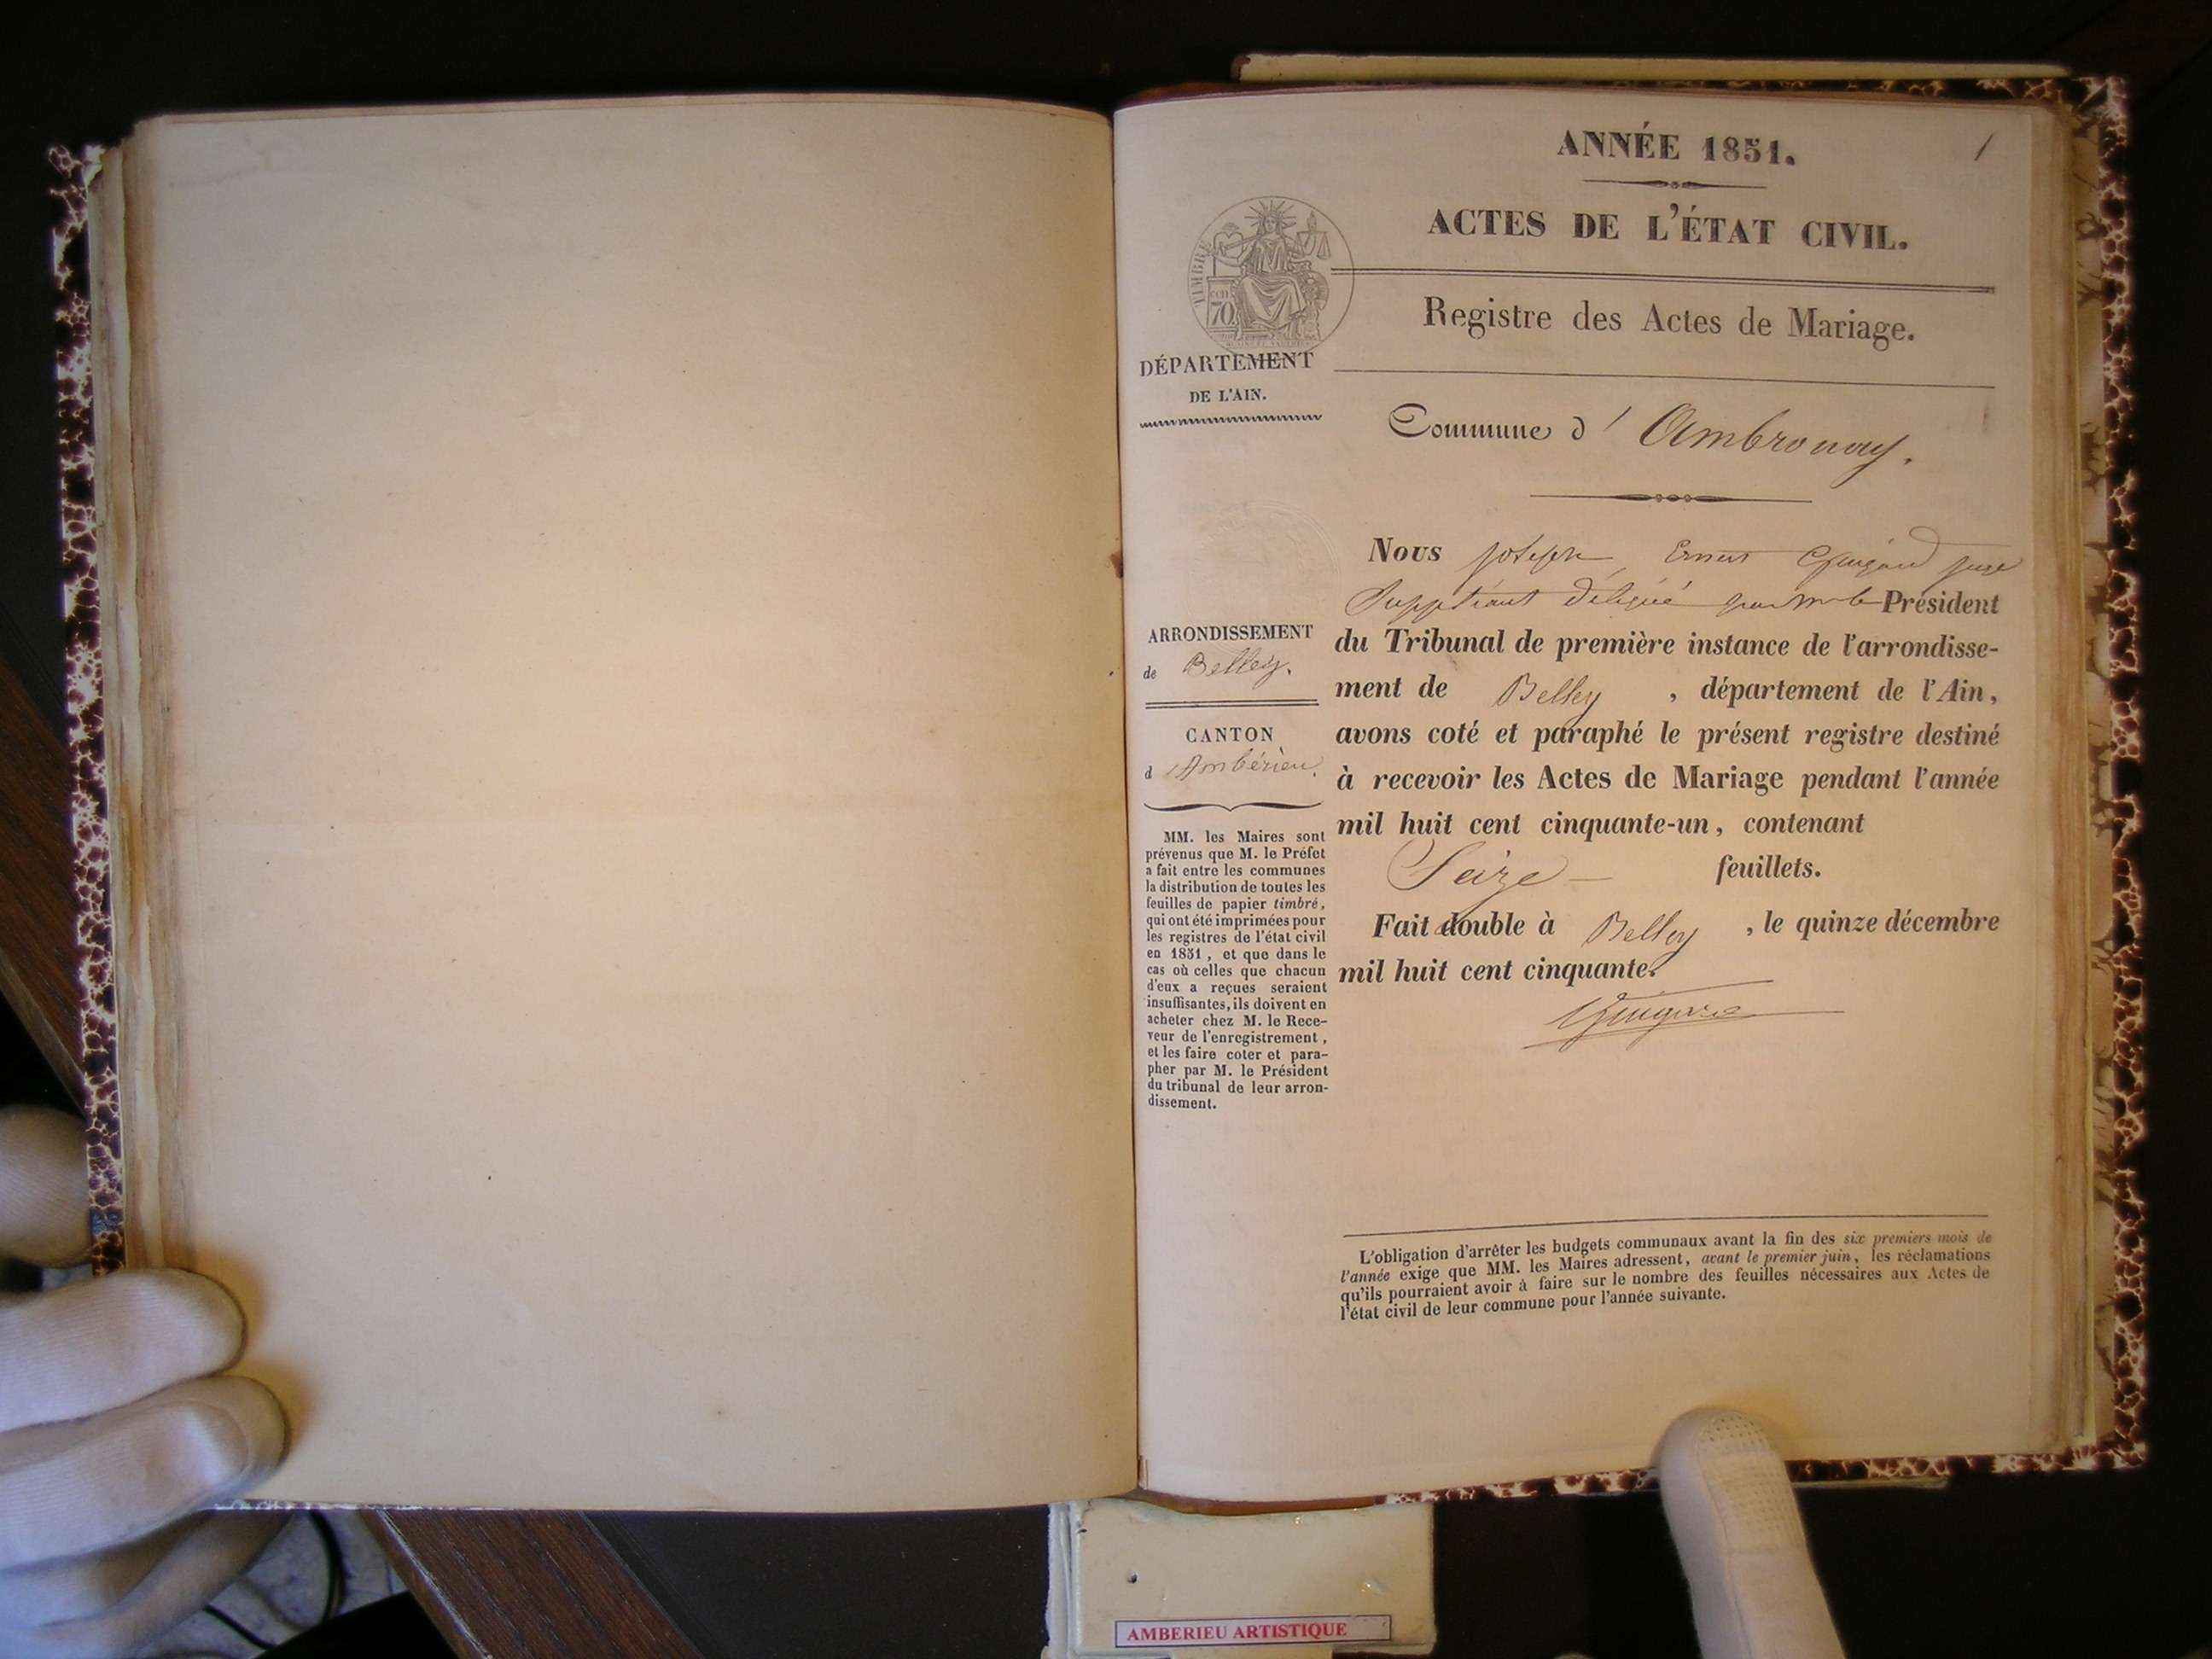 ANNÉE 1851.
1
ACTES DE L'ÉTAT CIVIL.
TIMBRE
cen
70
Registre des Actes de Mariage.
DÉPARTEMENT
DE L'AIN.
Commune d'Ambronay.
ARRONDISSEMENT
de Belley.
CANTON
d'Ambérieu.
MM. les Maires sont
prévenus que M. le Préfet
a fait entre les communes
la distribution de toutes les
feuilles de papier timbré,
qui ont été imprimées pour
les registres de l'état civil
en 1851, et que dans le
cas où celles que chacun
d'eux a reçues seraient
insuffisantes, ils doivent en
acheter chez M. le Rece-
veur de l'enregistrement,
et les faire coter et para-
pher par M. le Président
du tribunal de leur arron-
dissement.
Nous Joseph Ernest juge
Suppléant délégué par Mr le Président
du Tribunal de première instance de l'arrondisse-
ment de Belley, département de l'Ain,
avons coté et paraphé le présent registre destiné
à recevoir les Actes de Mariage pendant l'année
mil huit cent cinquante-un, contenant
Seize feuillets.
Fait double à Belley, le quinze décembre
mil huit cent cinquante.
L'obligation d'arrêter les budgets communaux avant la fin des six premiers mois de
l'année exige que MM. les Maires adressent, avant le premier juin, les réclamations
qu'ils pourraient avoir à faire sur le nombre des feuilles nécessaires aux Actes de
l'état civil de leur commune pour l'année suivante.
AMBERIEU ARTISTIQUE